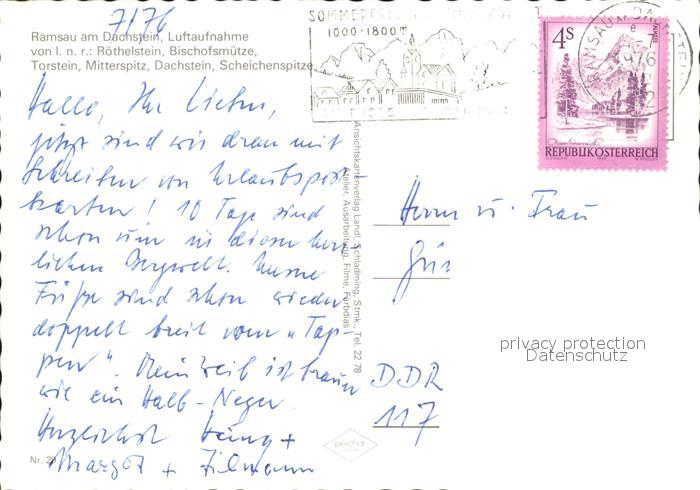 7/76
Ramsau am Dachstein, Luftaufnahme
von l. n. r.: Röthelstein, Bischofsmütze,
Torstein, Mitterspitz, Dachstein, Scheichenspitze
1000-1800m
4S
REPUBLIK ÖSTERREICH
RAMSAU AM DACHSTEIN
Hallo, Ihr Lieben,
jetzt sind wir dran mit
Schreiben von Urlaubspost-
karten! 10 Tage sind
schon um in dieser herr-
lichen Bergwelt. Unsere
Füße sind schon wieder
doppelt breit vom "Tap-
pen". Mein Weib ist braun
wie ein Halb-Neger.
Herzlichst Heinz +
Margot + Tilmann
Nr. 29
Ansichtskartenverlag Landl, Schladming, Stmk., Tel. 22 78
Atelier, Ausarbeitung, Filme, Farbdias
Herrn u. Frau
DDR
117
privacy protection
Datenschutz